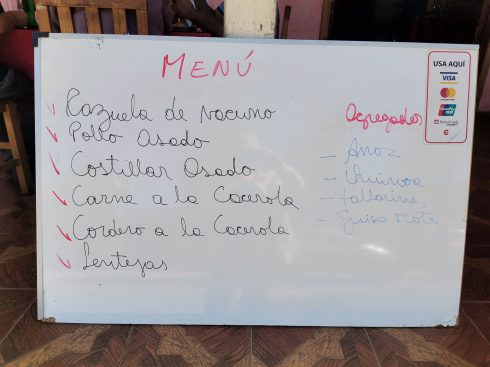 MENÚ
Cazuela de vacuno
Pollo Asado
Costillar Asado
Carne a la Cacerola
Cordero a la Cacerola
Lentejas
Agregados
- Arroz
- Quinoa
- tallarines
- Guiso Mote
USA AQUÍ
VISA